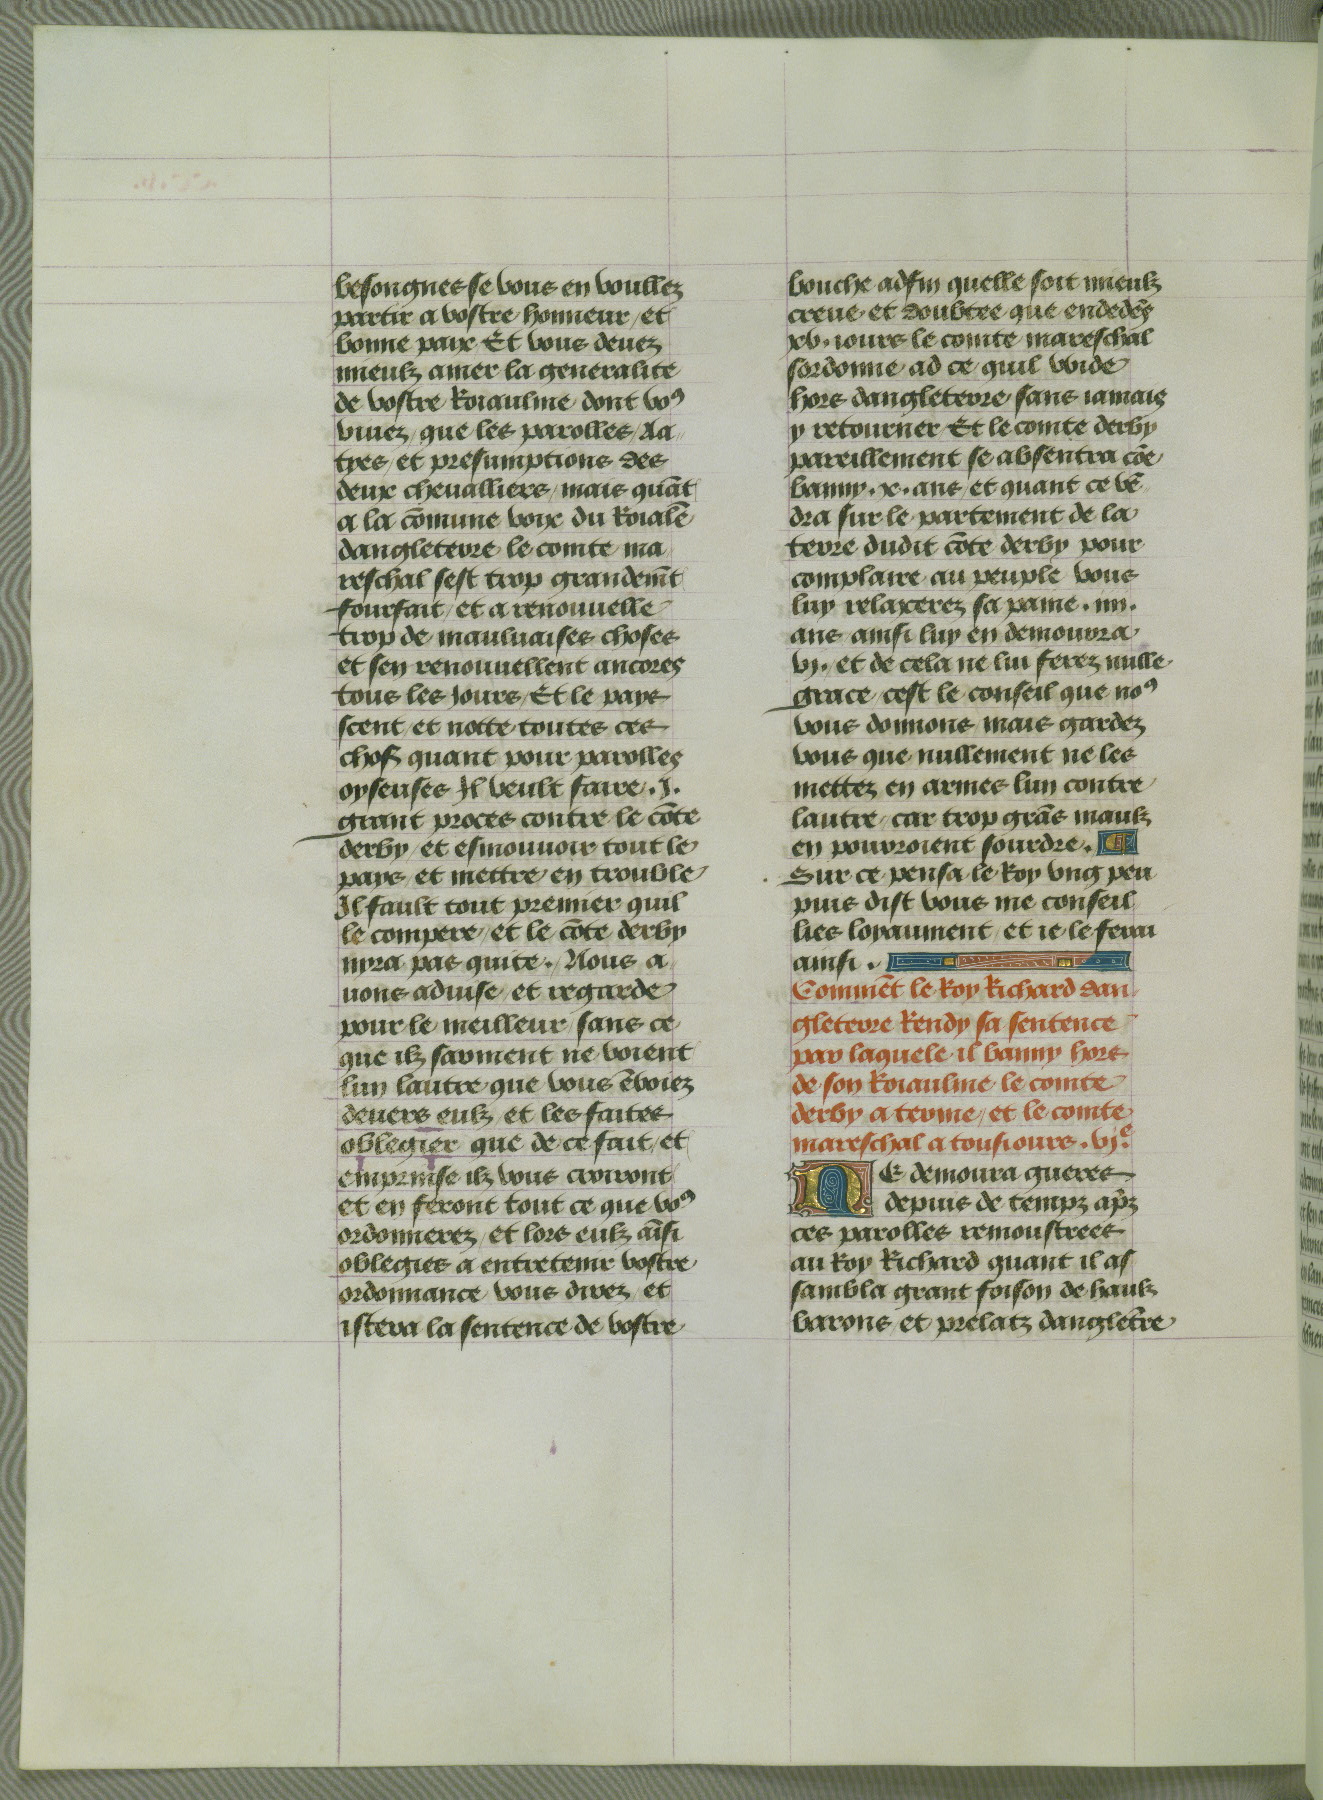 besongnes se vous en voullez
partir a vostre honneur / et
bonne paix Et vous deuez
mieulx amer la generalite
de vostre Roiaulme dont voꝰ
viuez / que les parolles / Aa
tres / et presumptions des
deux cheualliers / mais quāt
a la cōmune voix du Roialē
dangleterre le comte ma
reschal sest trop grandemt̄
fourfait / et a renouuelle
trop de mauluaises choses
et sen renouuellent ancores
tous les Jours / Et le pays
scent et notte toutes ces
choses quant pour parolles
oyseuses Jl veult faire .J.
grant proces contre le cōte
derby / et esmouuoir tout le
pays et mettre en trouble
Jl fault tout premier quil
le compere / et le cōte derby
nyra pas quite. Nous a
uons aduise / et regarde
pour le meilleur / sans ce
que ilz sarment ne voient
lun lautre que vous ēvoiez
deuers eulx et les faites
oblegier que de ce fait / et
emprinse ilz vous croiront
et en feront tout ce que voꝰ
ordonnerez / et lors eulx aīsi
oblegies a entretenir vostre
ordonnance vous direz / et
istera la sentence de vostre
bouche adfin quelle soit mieulx
creue et doubtee que endedēs
xv. iours le comte mareschal
sordonne ad ce quil wide
hors dangleterre sans iamais
y retourner Et le comte derby
pareillement se absentra cōe
banny .x. ans / et quant ce vē
dra sur le partement de la
terre dudit cōte derby pour
complaire au peuple vous
luy relaxerez sa paine .iiii.
ans ainsi luy en demourra
vj. et de cela ne lui ferez nulle
grace / cest le conseil que noꝰ
vous donnons mais gardez
vous que nullement ne les
mettez en armes lun contre
lautre / car trop grās maulx
en pourroient sourdre.
Sur ce pensa le Roy vng peu
puis dist vous me conseil
lies loyaument / et ie le feray
ainsi.
Commēt le Roy Richard dan
gleterre Rendy sa sentence
par laquele il banny hors
de son Roiaulme le comte
derby a terme / et le comte
mareschal a tousiours .vjᵉ.
NE demoura gueres
depuis de tempz apꝛ̄z
ces parolles remoustrees
au Roy Richard quant il as
sambla grant foison de haulx
barons / et prelatz dangletr̄e